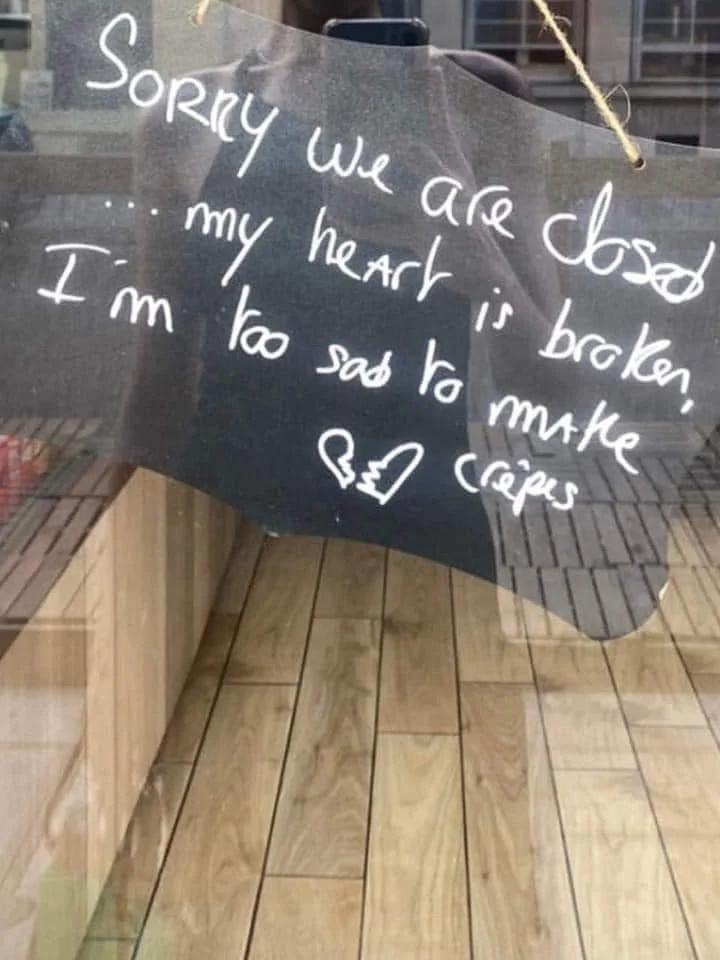 Sorry we are closed
... my heart is broken,
I'm too sad to make
crêpes